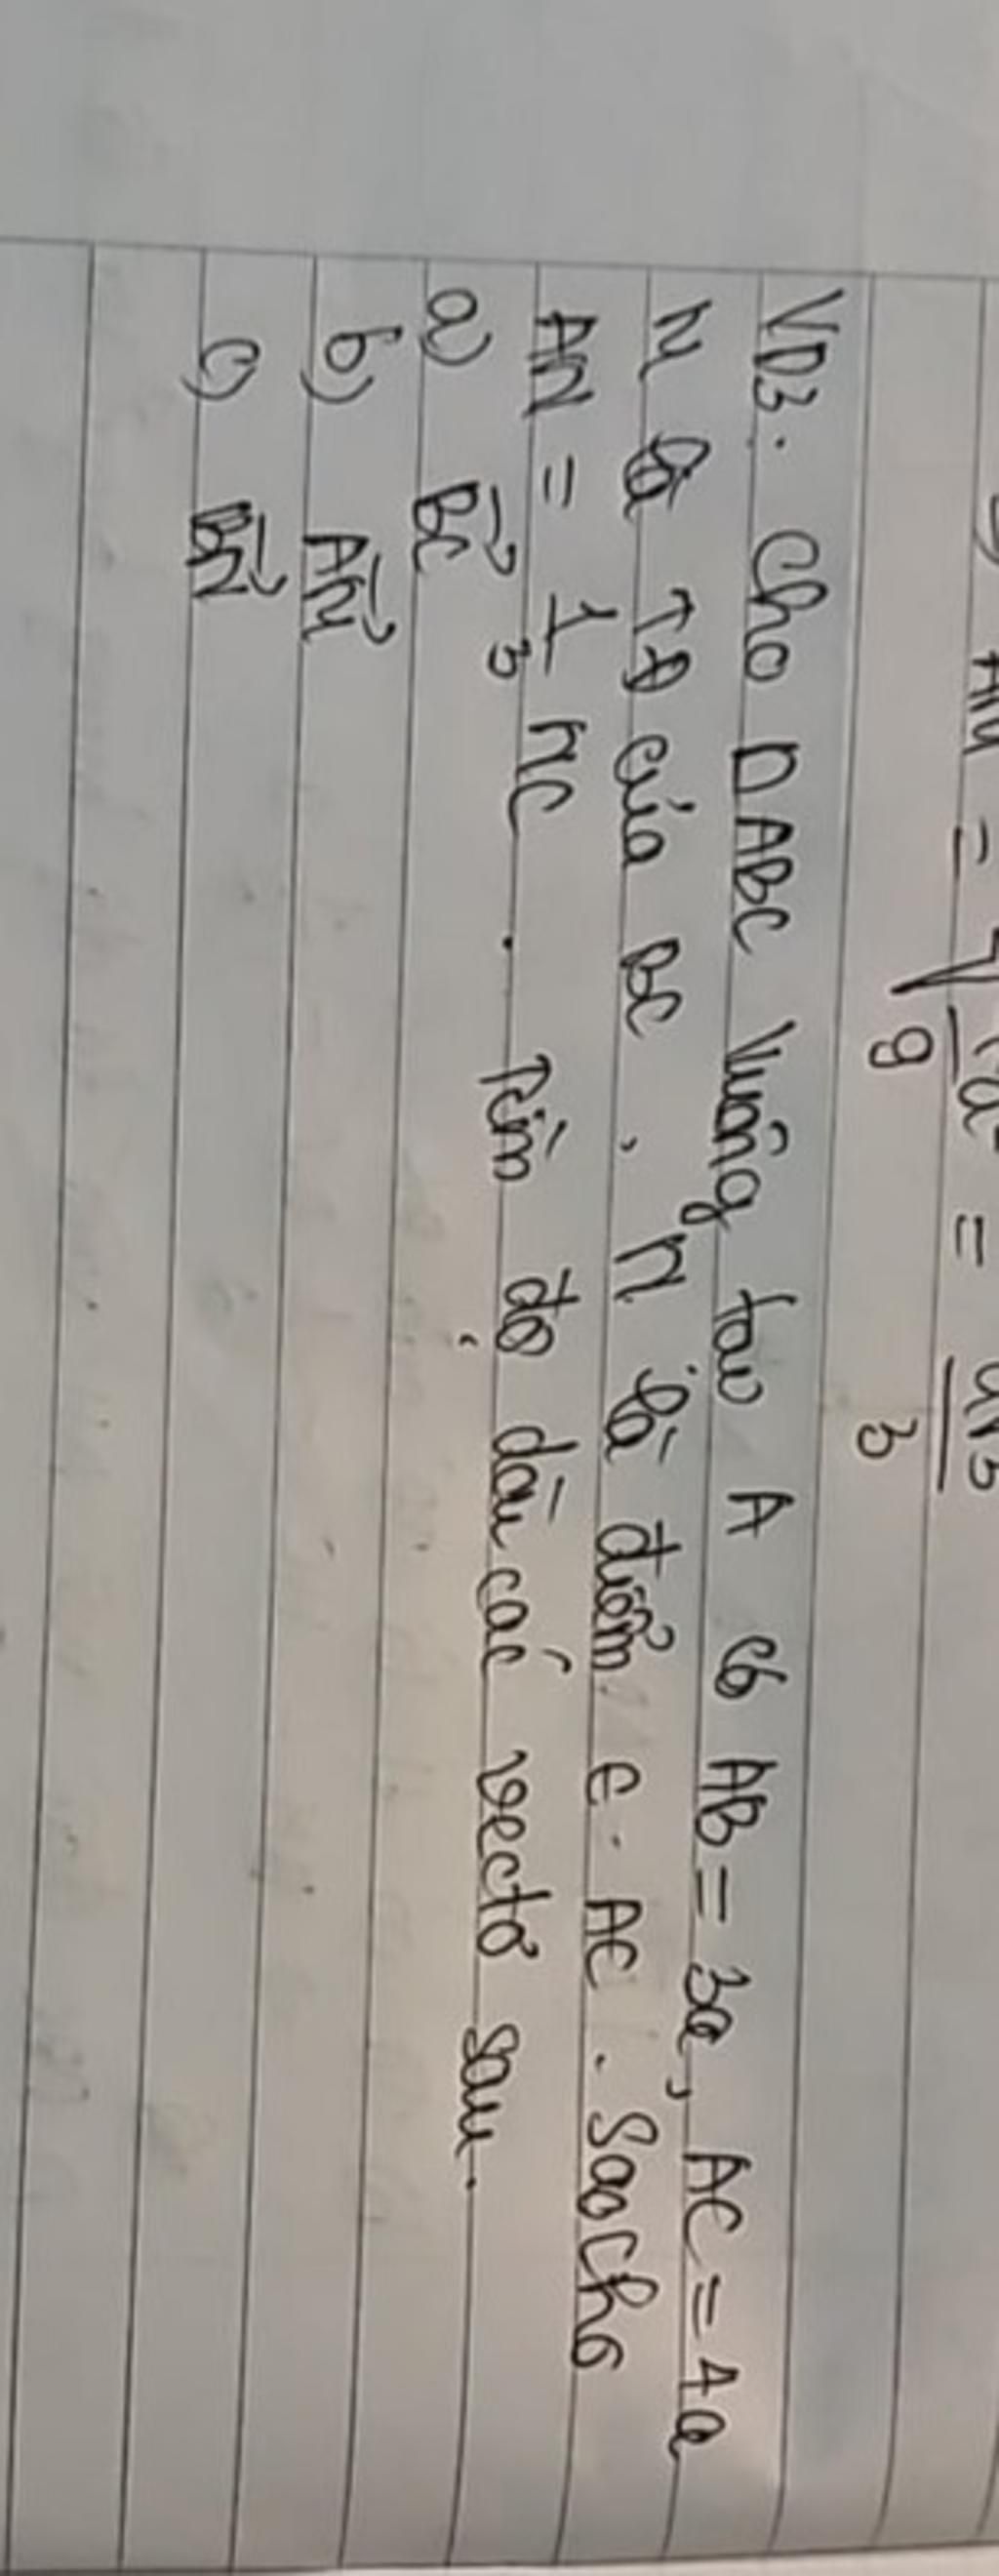 AM = √ a² = a√3
9 3
VD3. Cho ΔABC vuông tại A có AB = 3a, AC = 4a
M là TĐ của BC, N là điểm ∈ AC. Sao cho
AN = 1/3 NC. Tìm độ dài các vectơ sau.
a) BC⃗
b) AM⃗
c) BN⃗